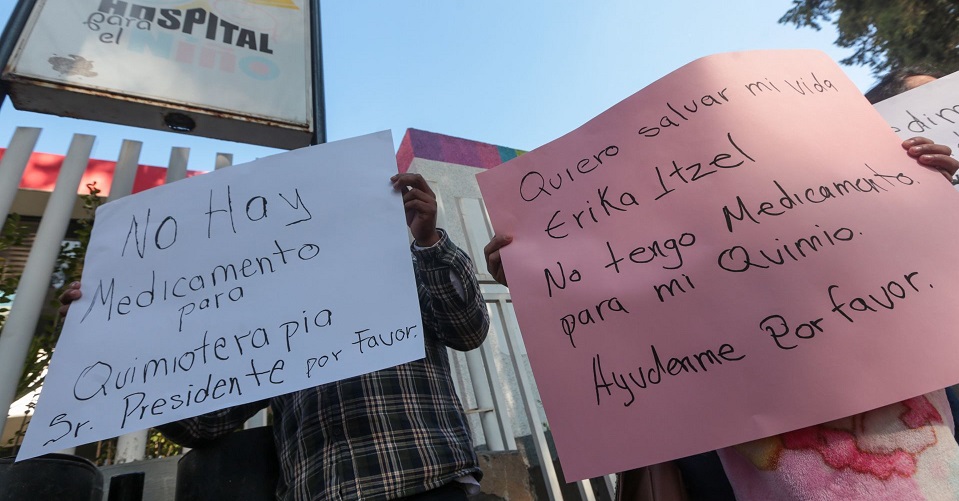 HOSPITAL
para
el NIÑO
No Hay
Medicamento
para
Quimioterapia
Sr. Presidente por Favor.
Quiero salvar mi vida
Erika Itzel
No tengo Medicamento.
para mi Quimio.
Ayudenme Por favor.